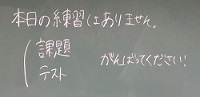 本日の練習はありません。
課題
テスト
がんばってください!